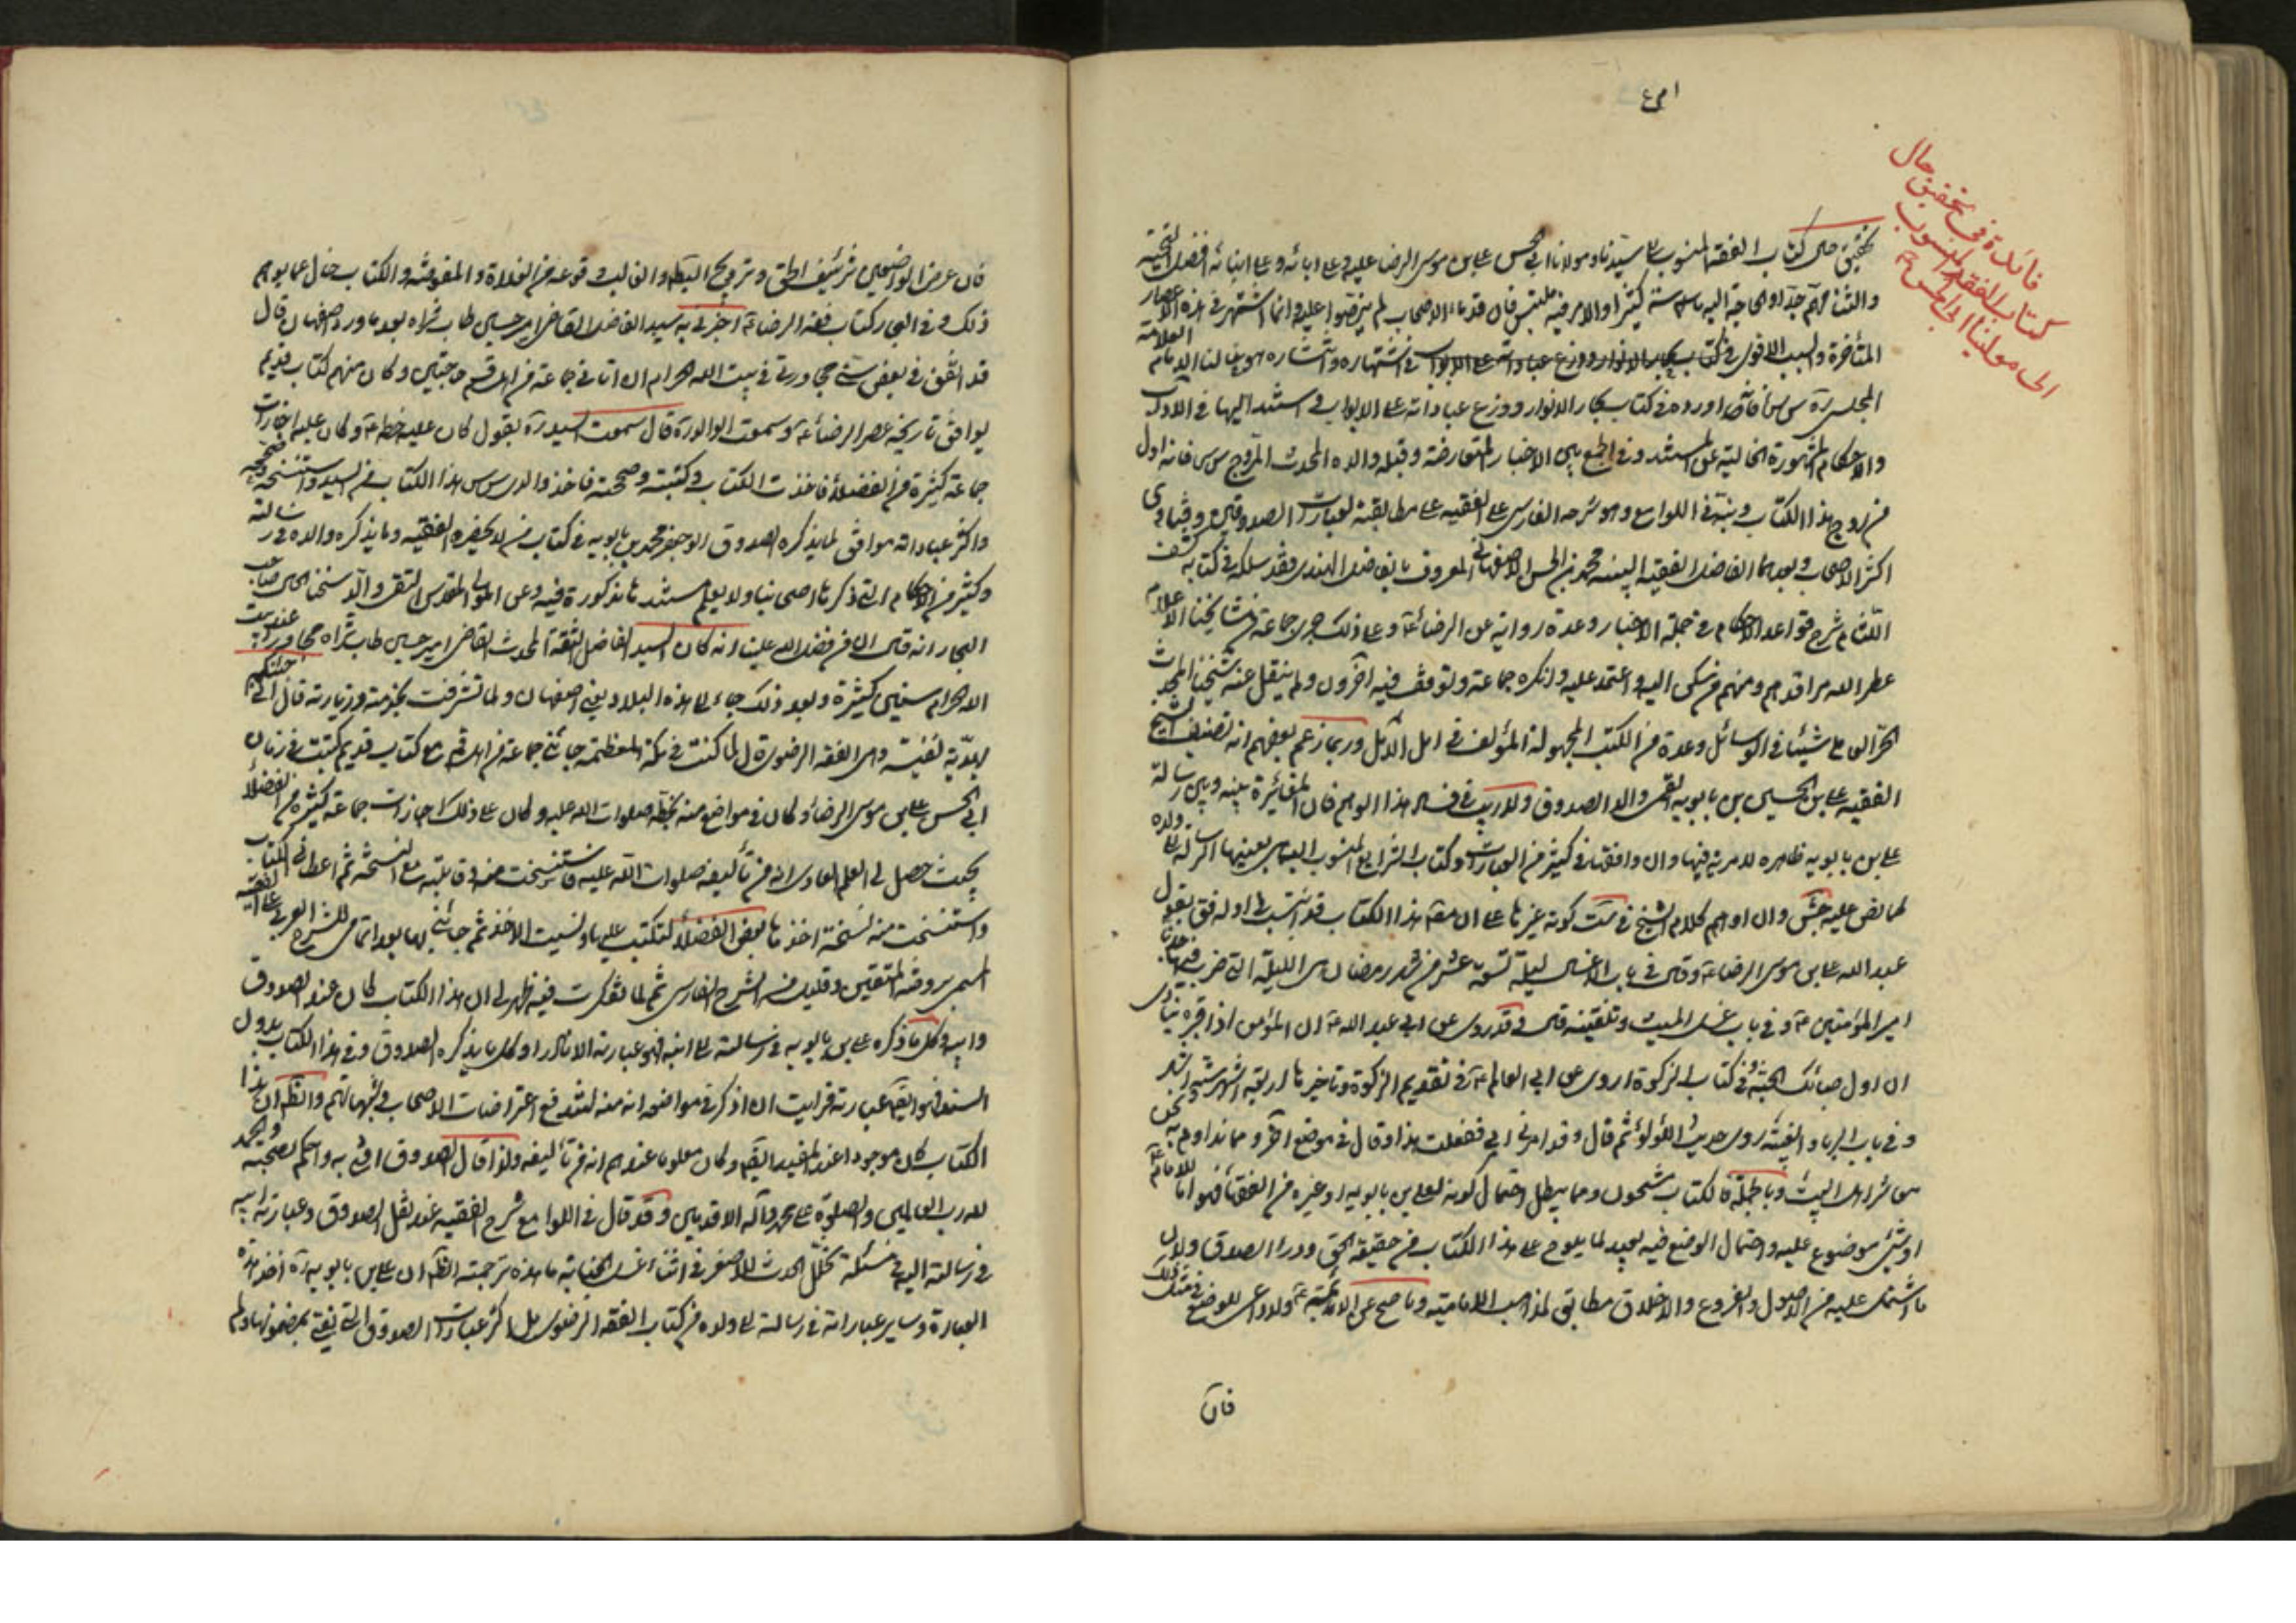 فائدة في تحقيق حال
كتاب الفقه المنسوب
الى مولينا ابي الحسن
تحقيق حال كتاب الفقه المنسوب الى سيدنا ومولانا ابي الحسن علي بن موسى الرضا عليه وعلى ابائه وعلى ابنائه افضل التحية
والثناء مهم جدا والحاجة اليه ماسة كثيرا والامر فيه ملتبس فان قدماء الاصحاب لم ينصوا عليه وانما اشتهر في هذه الاعصار
المتأخرة والسبب الاقوى في اشتهاره وانتشاره هو خالنا العلامة
المجلسي ره فانه اورده في كتاب بحار الانوار ووزع عباداته على الابواب واستند اليها في الاداب
والاحكام المشهورة الخالية عن المستند وفي الجمع بين الاخبار المتعارضة وقبله والده المحدث المروج فانه اول
من روج هذا الكتاب ونبه في اللوامع وهو شرحه الفارسي على الفقيه على مطابقته لعبارات الصدوقين وفتاوى
اكثر الاصحاب وبعدهما الفاضل الفقيه محمد بن الحسن الاصفهاني المعروف بالفاضل الهندي فقد سلكه في كتابه كشف
اللثام شرح قواعد الاحكام في جملة الاخبار وعده رواية عن الرضا ع وعلى ذلك جرى جماعة من مشايخنا الاعلام
عطر الله مراقدهم ومنهم من سكن اليه واعتمد عليه وانكره جماعة وتوقف فيه آخرون ولم ينقل عنه شيخنا المحدث
الحر العاملي شيئا في الوسائل وعده من الكتب المجهولة المؤلف في امل الآمل وربما زعم بعضهم انه تصنيف الشيخ
الفقيه علي بن الحسين بن بابويه القمي والد الصدوق ولا ريب في فساد هذا الوهم فان المغائرة بينه وبين رسالة
علي بن بابويه ظاهرة لا مرية فيها وان وافقها في كثير من العبارات وكتاب الشرايع المنسوب اليه هي بعينها الرسالة الى ولده
كما نص عليه جش وان اوهم كلام الشيخ في ست كونه غيرها على ان مقدمة هذا الكتاب قد اشتملت اوله فق يقول
عبد الله علي بن موسى الرضا ع وقال في باب الاغسال ليلة تسعة عشر من شهر رمضان هي الليلة التي ضرب فيها جدنا
امير المؤمنين ع وفي باب غسل الميت وتلقينه قال وقد روي عن ابي عبد الله ع ان المؤمن اذا قبره ينادى
ان اول حبائك الجنة وفي كتاب الزكوة اروى عن ابي العالم ع في تقديم الزكوة وتأخيرها اربعة اشهر ستة اشهر
وفي باب الرياء والعينة روى حديث اللؤلؤ ثم قال وقد امرني ابي ففعلت هذا وقال في موضع آخر ومما نداوم به نحن
معاشر اهل البيت وبالجملة فالكتاب مشحون بما يبطل احتمال كونه لعلي بن بابويه او غيره من الفقهاء فهو اما للامام ع
او شئ موضوع عليه واحتمال الوضع فيه بعيد لما يلوح على هذا الكتاب من حقيقة الحق ورداء الصدق ولان
ما اشتمل عليه من الاصول والفروع والاخلاق مطابق لمذهب الامامية وما صح عن الائمة ع ولا داعي للوضع في مثل ذلك
فان
فان غرض الواضعين تزييف الحق وترويج الباطل والغالب وقوعه من الغلاة والمفوضة والكتاب خال عما يوهم
ذلك وفي البحار كتاب فقه الرضا ع اخبرني به سيد الفاضل القاضي امير حسين طاب ثراه بعد ما ورد اصفهان قال
قد اتفق في بعض سني مجاورتي في بيت الله الحرام ان اتاني جماعة من اهل قم حاجين وكان معهم كتاب قديم
يوافق تاريخه عصر الرضا ع وسمعت الوالد ره قال سمعت السيد ره يقول كان عليه خطه ع وكان عليه اجازات
جماعة كثيرة من الفضلاء فاخذت الكتاب وكتبته وصححته فاخذ والدي هذا الكتاب من السيد واستنسخه وصححه
واكثر عباداته موافق لما يذكره الصدوق ابو جعفر محمد بن بابويه في كتاب من لا يحضره الفقيه وما يذكره والده في رسالته
وكثير من الاحكام التي ذكرها اصحابنا ولا يعلم مستندها مذكورة فيه وعن المولى المقدس التقي والد شيخنا صاحب
البحار انه قال ان من فضل الله علينا انه كان السيد الفاضل الثقة المحدث القاضي امير حسين طاب ثراه مجاورا عند بيت
الله الحرام سنين كثيرة وبعد ذلك جاء الى هذه البلاد يعني اصفهان ولما تشرفت بخدمته وزيارته قال اني جئتكم
بهدية نفيسة وهي الفقه الرضوي قال لما كنت في مكة المعظمة جائني جماعة من اهل قم مع كتاب قديم كتبت في زمان
ابي الحسن علي بن موسى الرضا ع وكان في مواضع منه بخطه صلوات الله عليه وكان على ذلك اجازات جماعة كثيرة من الفضلاء
بحيث حصل لي العلم العادي انه من تأليفه صلوات الله عليه فاستنسخت منه وقابلته مع النسخة ثم اعطاني الكتاب
واستنسخت منه نسخة اخذها بعض الفضلاء ليكتب عليها ونسيت الاخذ ثم جائني بها بعد اتمامي للشرح العربي على الفقيه
المسمى بروضة المتقين وقليل من الشرح الفارسي ثم لما تفكرت فيه ظهر لي ان هذا الكتاب كان عند الصدوق
وابيه وكل ما ذكره علي بن بابويه في رسالته الى ابنه فهو عبارته الا نادرا وكل ما يذكره الصدوق وفي هذا الكتاب بدون
السند فهو ايضا عبارته فرأيت ان اذكر في مواضعه انه منه ليندفع اعتراضات الاصحاب وشبهاتهم والظاهر ان هذا
الكتاب كان موجودا عند المفيد ايضا وكان معلوما عندهم انه من تأليفه ولذا قال الصدوق افتي به واحكم بصحته والحمد
لله رب العالمين والصلوة على محمد وآله الاقدسين وقد قال في اللوامع شرح الفقيه عند نقل الصدوق وعبارة ابيه
في رسالته اليه في مسئلة تخلل الحدث الاصغر في اثناء غسل الجنابة ما هذه ترجمته الظاهر ان علي بن بابويه ره اخذ هذه
العبارة وساير عباراته في رسالته الى ولده من كتاب الفقه الرضوي بل اكثر عبارات الصدوق التي يفتى بمضمونها ولم